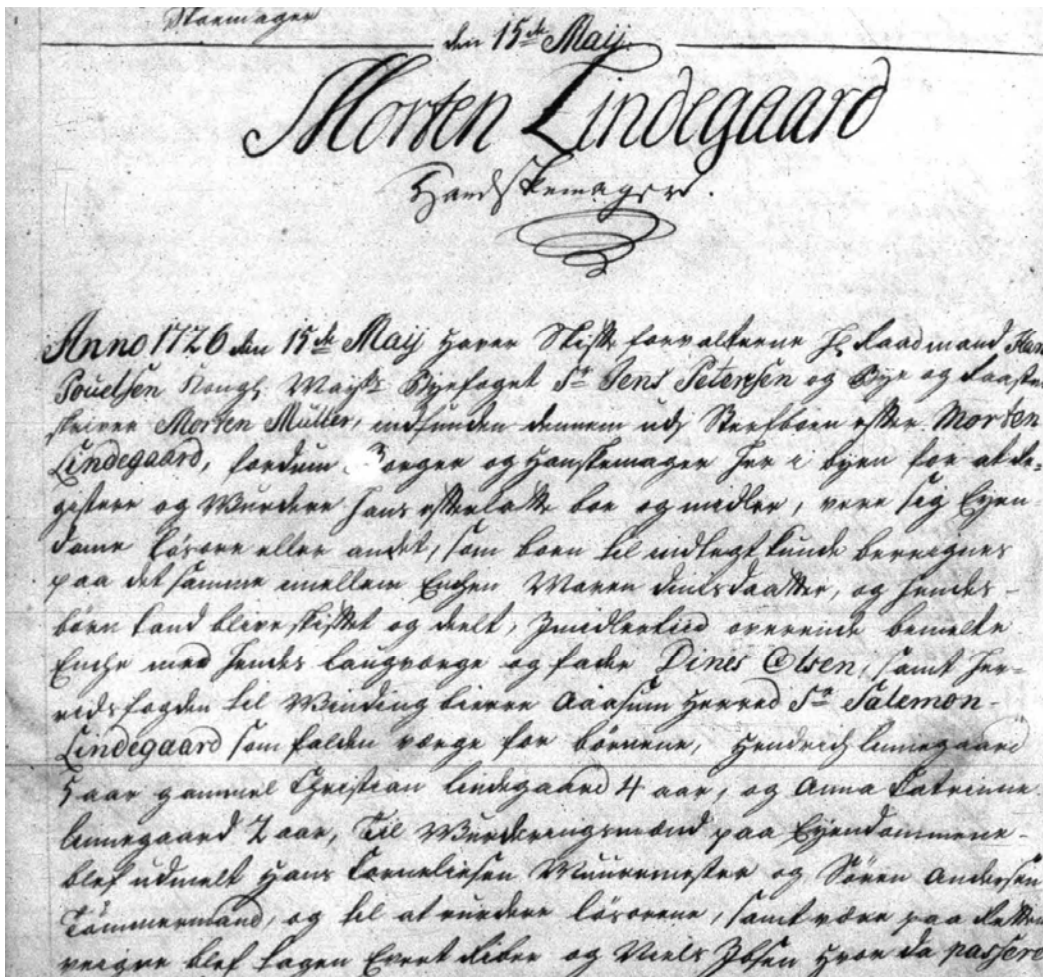 Skoemager
den 15de Maij.
Morten Lindegaard
Handskemager.
Anno 1726 den 15de Maij haver Skifte forvalterne Hr. Raadmand Hans
Pouelsen Kongl. Mayts. Byefoget Sr. Jens Petersen og Bye og Raadstu
skriver Morten Müller, indfunden dennem udj Sterfboen efter Morten
Lindegaard, fordum Borger og Handskemager her i byen for at Re-
gistere og Wurdere hans efterlatte boe og midler, være sig Eyen-
domme Lösøre eller andet, som boen til indtegt kunde beregnes
paa det samme imellem Enchen Maren dinisdaatter, og hendes
börn kand blive skiftet og deelt, Imidlertiid overværende bemelte
Enche med hendes laugværge og fader Dines Olsen, samt Her-
ridsfogden til Winding bierre Aaasum Herred Sr. Salemon
Lindegaard som falden værge for börnene, Hendrich linnegaard
5 aar gammel Christian lindegaard 4 aar, og Anna Catrinne
linnegaard 2 aar, Til Wurderingsmænd paa Eyendommene
blef udmelt Hans Corneliesen Muurermester og Sören Andersen
Tömmermand, og til at vurdere lösörene, samt være paa Rettens
veigne blef tagen Evert Riber og Niels Ibsen Hvor da passere